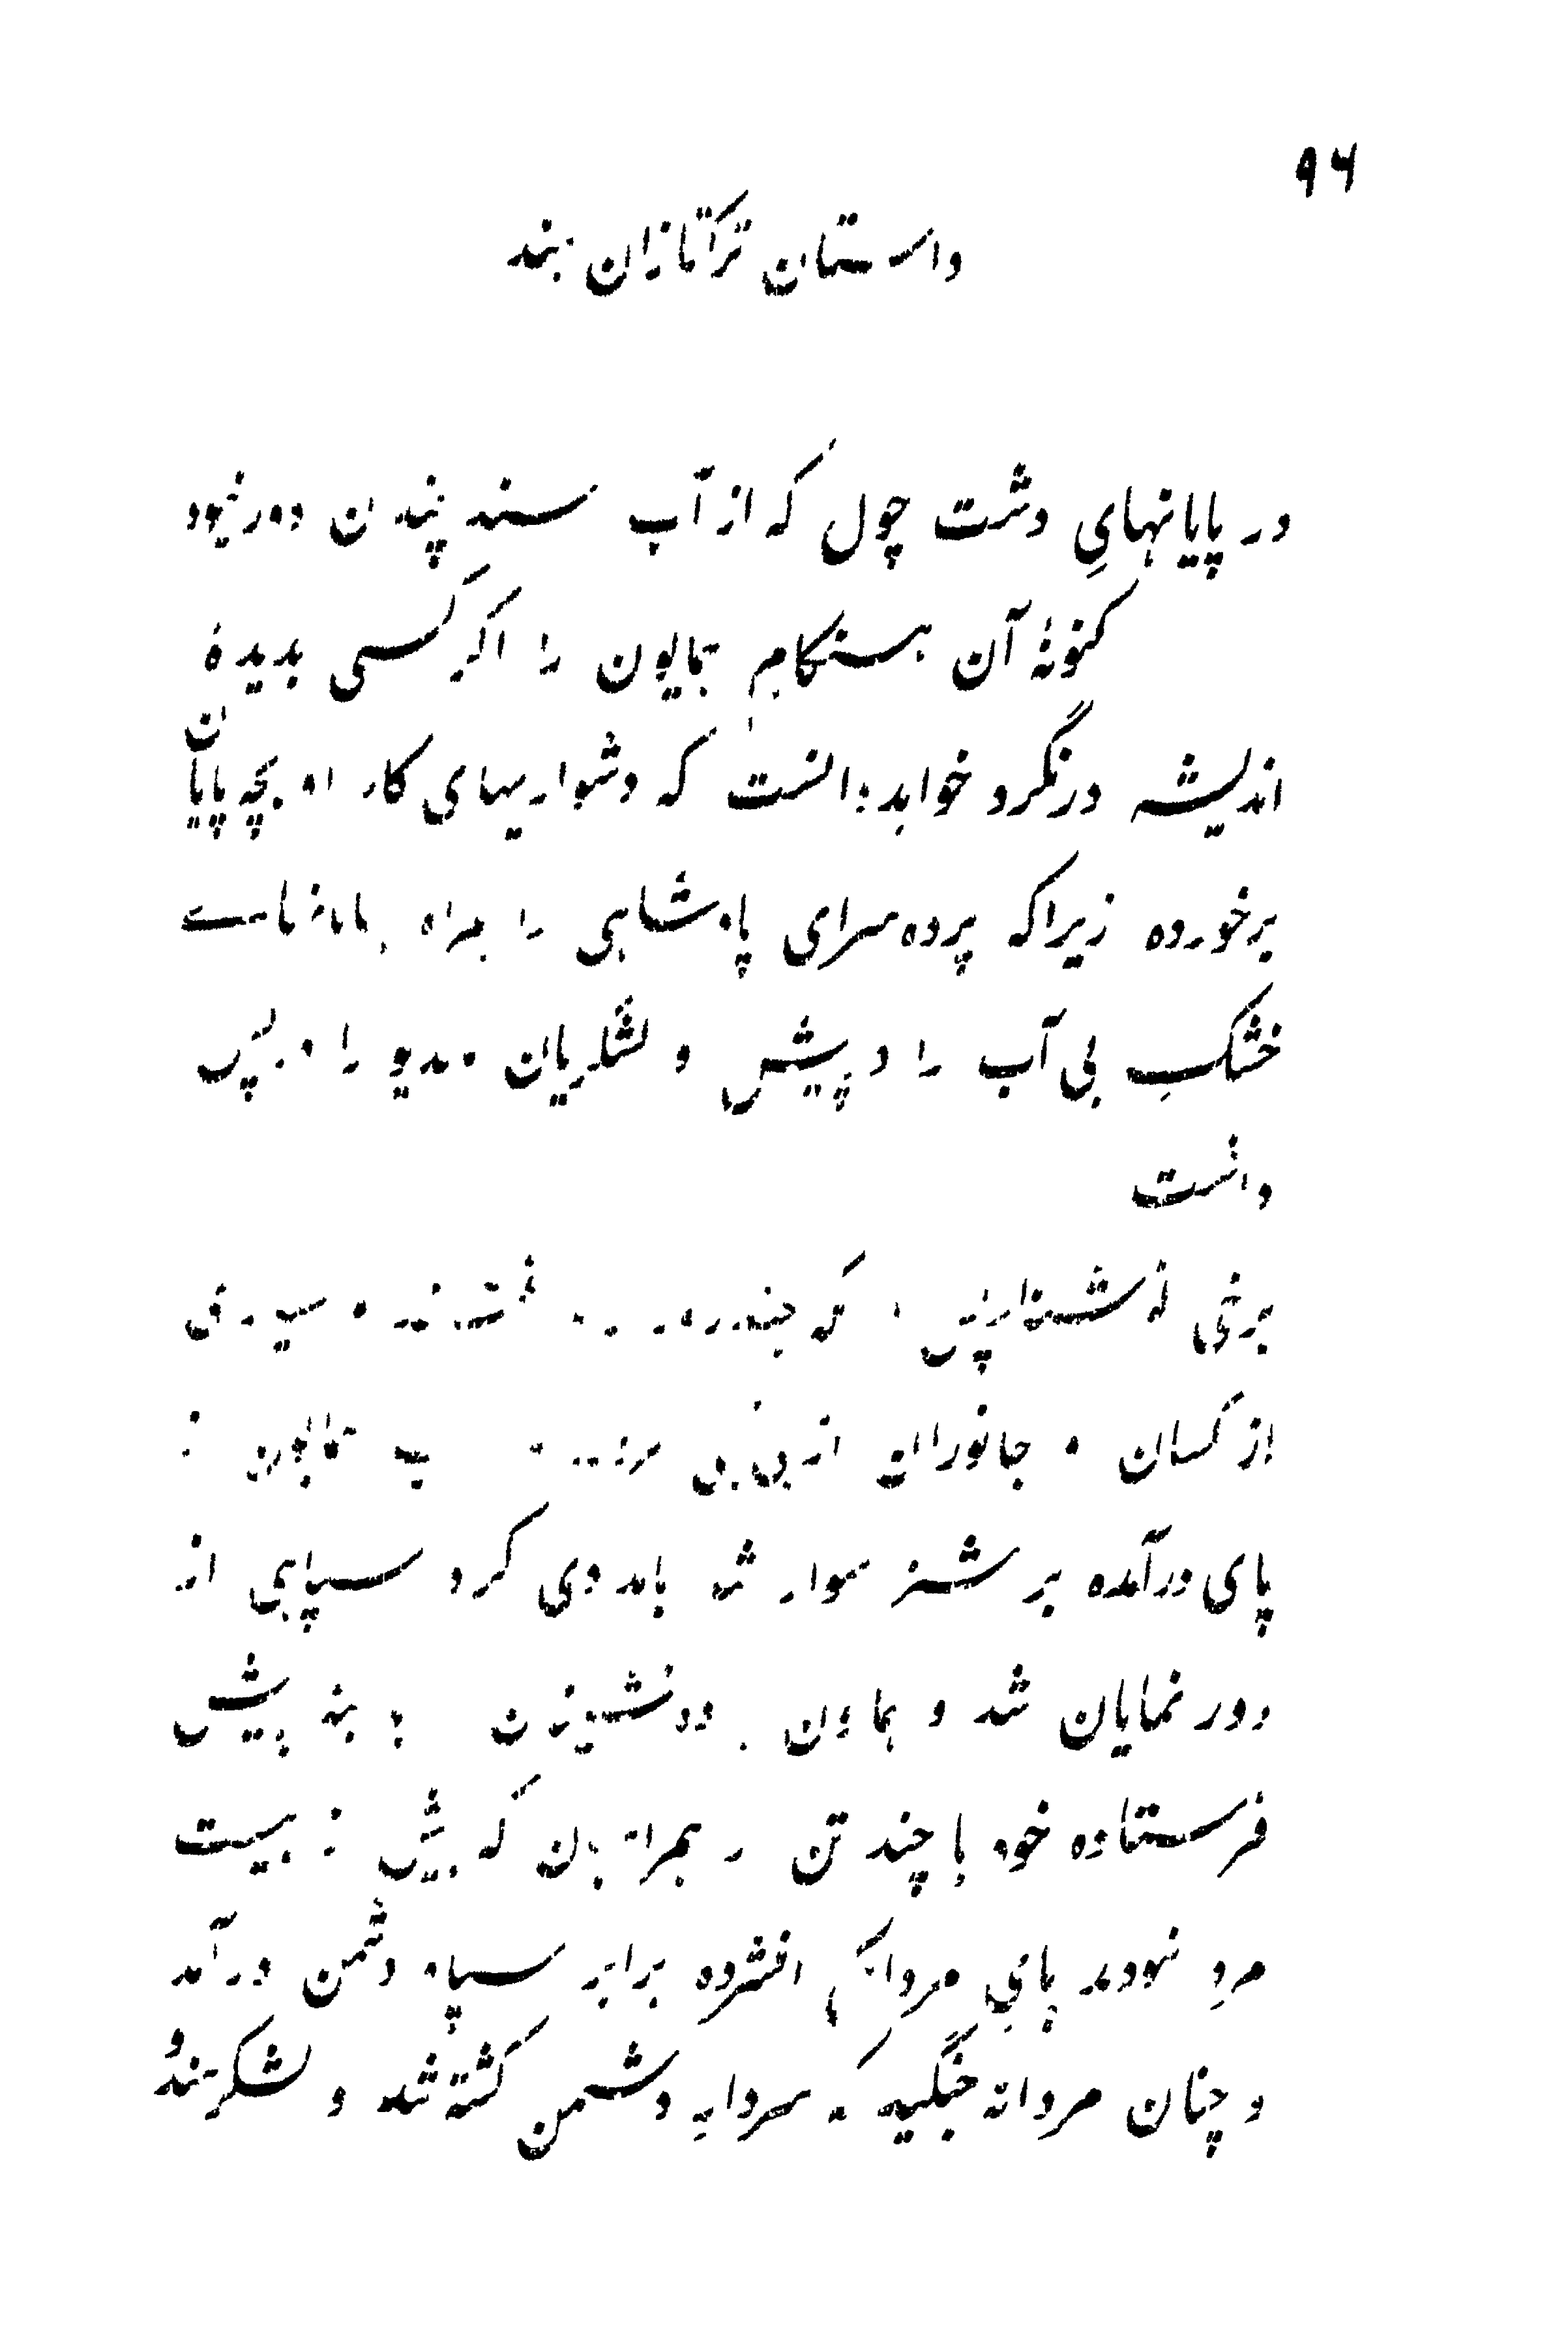 ۹۶
داستان ترکتازان هند
در پایانهایِ دشت چول که از آب سند چندان دور نبود
کنونهٔ آن هنگام همایون را اگر کسی بدیدهٔ
اندیشه درنگرد خواهد دانست که دشواریهای کار او بچه پایان
برخورده زیراکه پرده سرای پادشاهی را همراه
خشکِ بی آب را در پیش و لشکریان مدیو را در پس
داشت
برخی
از کسان و جانوران از بی آبی همایون
پای درآمده بر شتر سوار شد بامدادی گرد سپاهی از
دور نمایان شد و همایون پیش
فرستاده خود با چند تن از همراهان که بیش از بیست
مرد نبودند پایِ مردانگی افشرده برابر سپاه دشمن درآمد
و چنان مردانه جنگید که سردارِ دشمن کشته شد و لشکر هندو